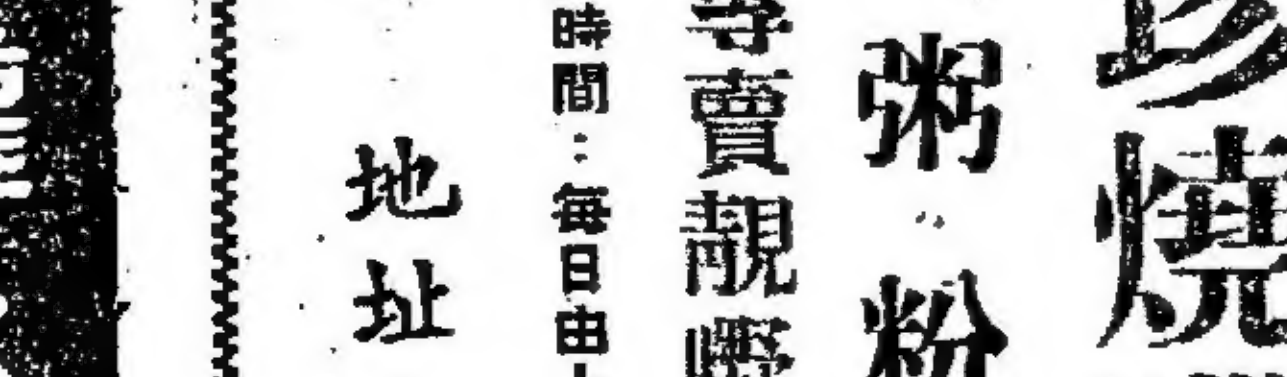 燒
粥
粉
賣靚
時間：每日由
地址